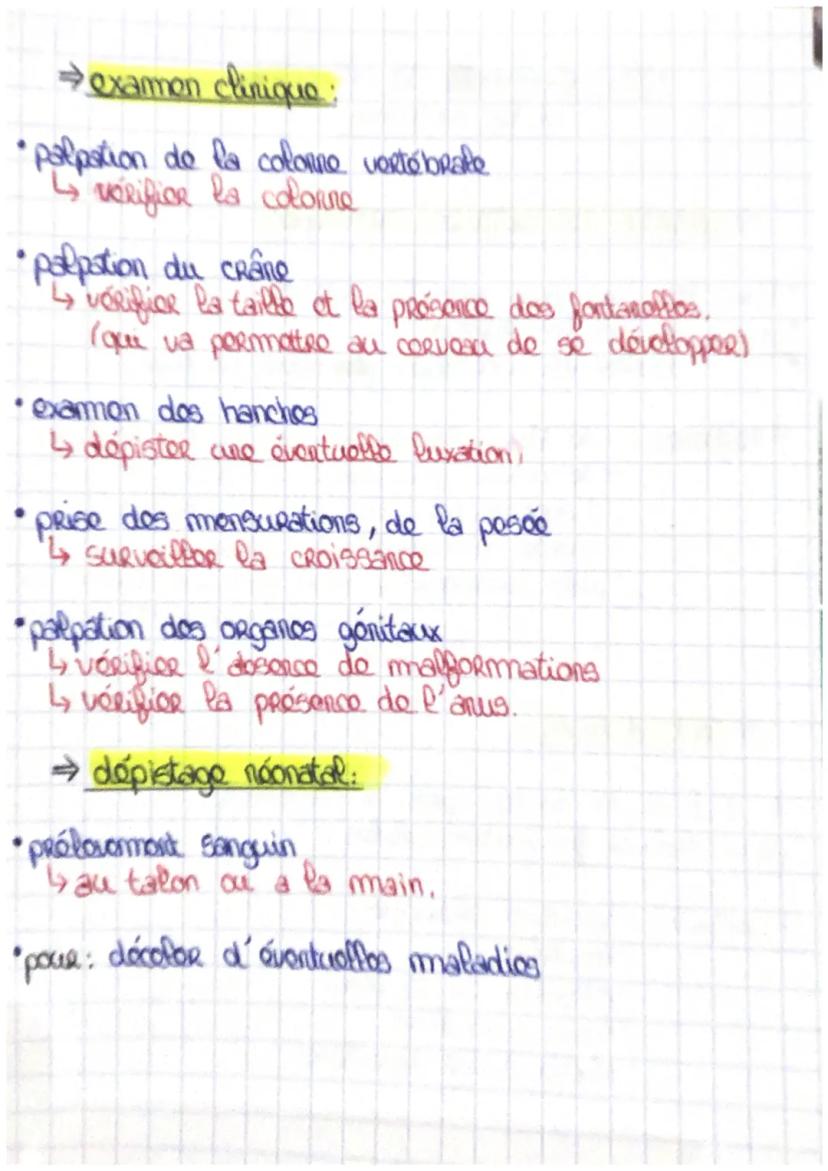 ⇒ examen clinique :
• palpation de la colonne vertébrale
↳ vérifier la colonne
• palpation du crâne
↳ vérifier la taille et la présence des fontanelles.
(qui va permettre au cerveau de se développer)
• examen des hanches
↳ dépister une éventuelle luxation,
• prise des mensurations, de la pesée
↳ surveiller la croissance
• palpation des organes génitaux
↳ vérifier l'absence de malformations
↳ vérifier la présence de l'anus.
⇒ dépistage néonatal :
• prélèvement sanguin
↳ au talon ou a la main.
• pour : déceler d'éventuelles maladies